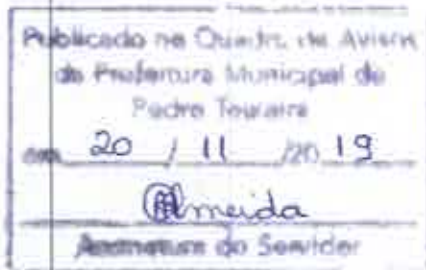 Publicado no Quadro de Avisos
da Prefeitura Municipal de
Pedro Teixeira
em 20 / 11 /20 19
Almeida
Assinatura do Servidor